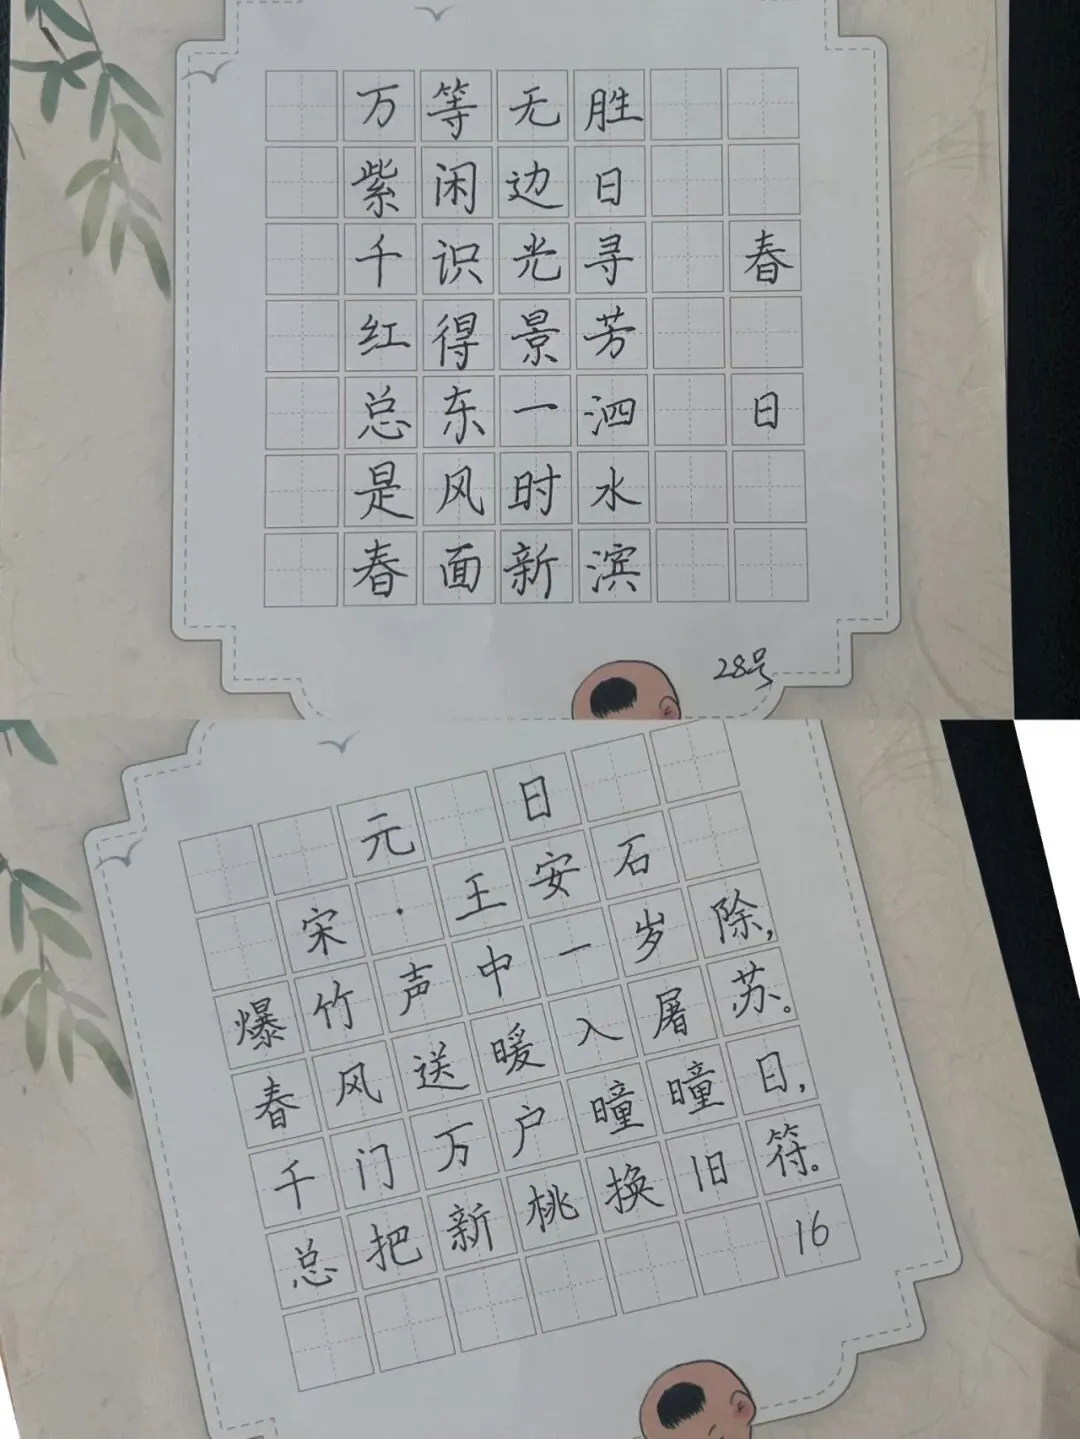 春日
胜日寻芳泗水滨
无边光景一时新
等闲识得东风面
万紫千红总是春
28号
元日
宋·王安石
爆竹声中一岁除,
春风送暖入屠苏。
千门万户曈曈日,
总把新桃换旧符。
16